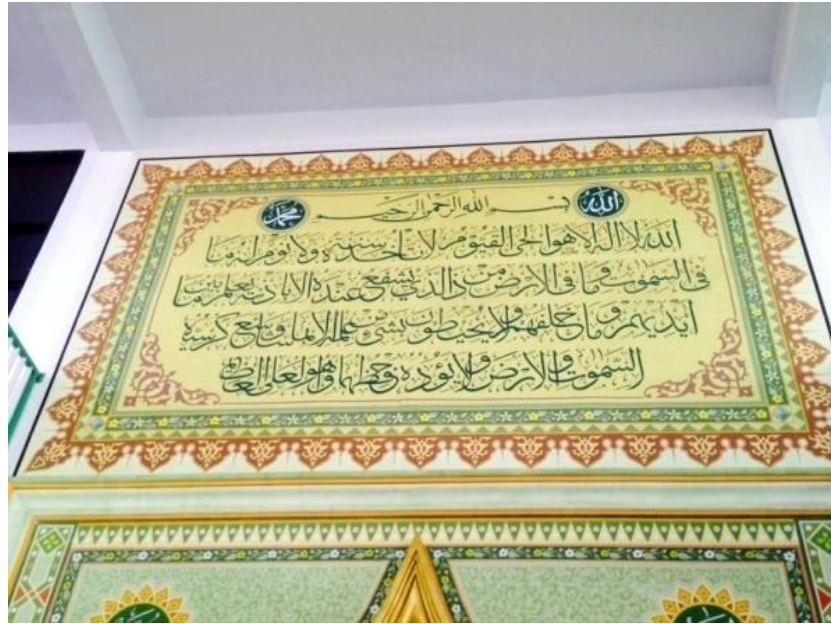 الله
بسم الله الرحمن الرحيم
محمد
الله لا اله الا هو الحي القيوم لا تاخذه سنة ولا نوم له ما
في السموت وما في الارض من ذا الذي يشفع عنده الا باذنه يعلم ما بين
ايديهم وما خلفهم ولا يحيطون بشئ من علمه الا بما وسع كرسيه
السموت والارض ولا يؤده حفظهما وهو العلي العظيم